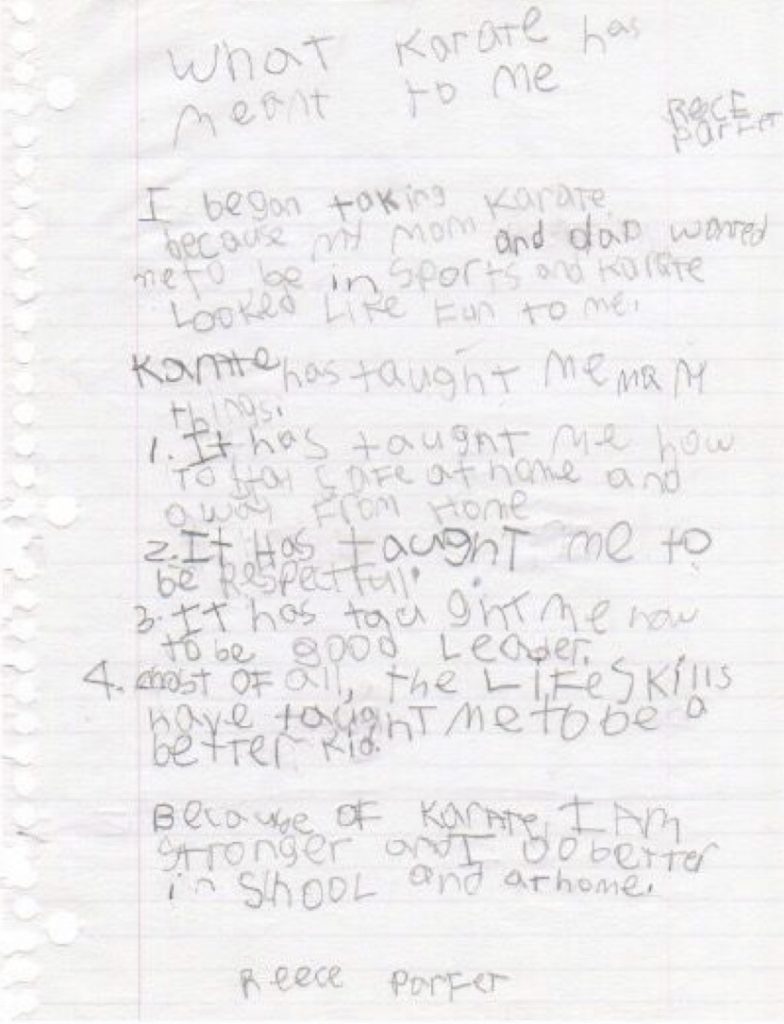 What Karate has
meant to me
Reece
Parfet
I began taking Karate
because my mom and dad wanted
me to be in sports and Karate
Looked Like Fun to me.
Karate has taught me many
things.
1. It has taught me how
to stay safe at home and
away From Home
2. It Has taught me to
be Respectful.
3. It has taught me how
to be good Leader.
4. most of all, the Life Skills
have taught me to be a
better kid.
Because of Karate, I Am
stronger and I Do better
in ShooL and at home.
Reece Parfet